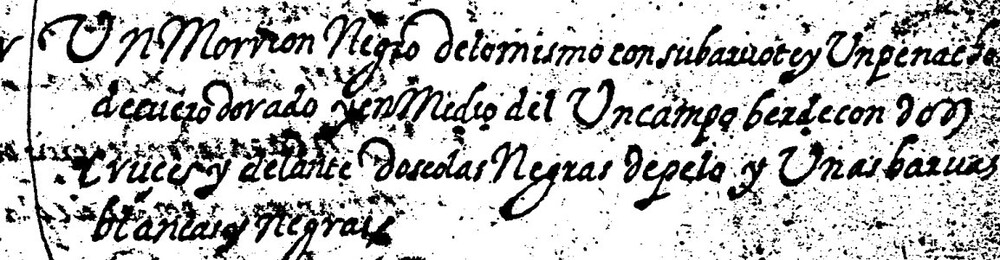 Un Morrion Negro de lo mismo con su baruote y Un penacho
de cuero dorado y en Medio del Un campo berde con dos
cruces y delante dos colas Negras de pelo y Unas baruas
blancas y negras